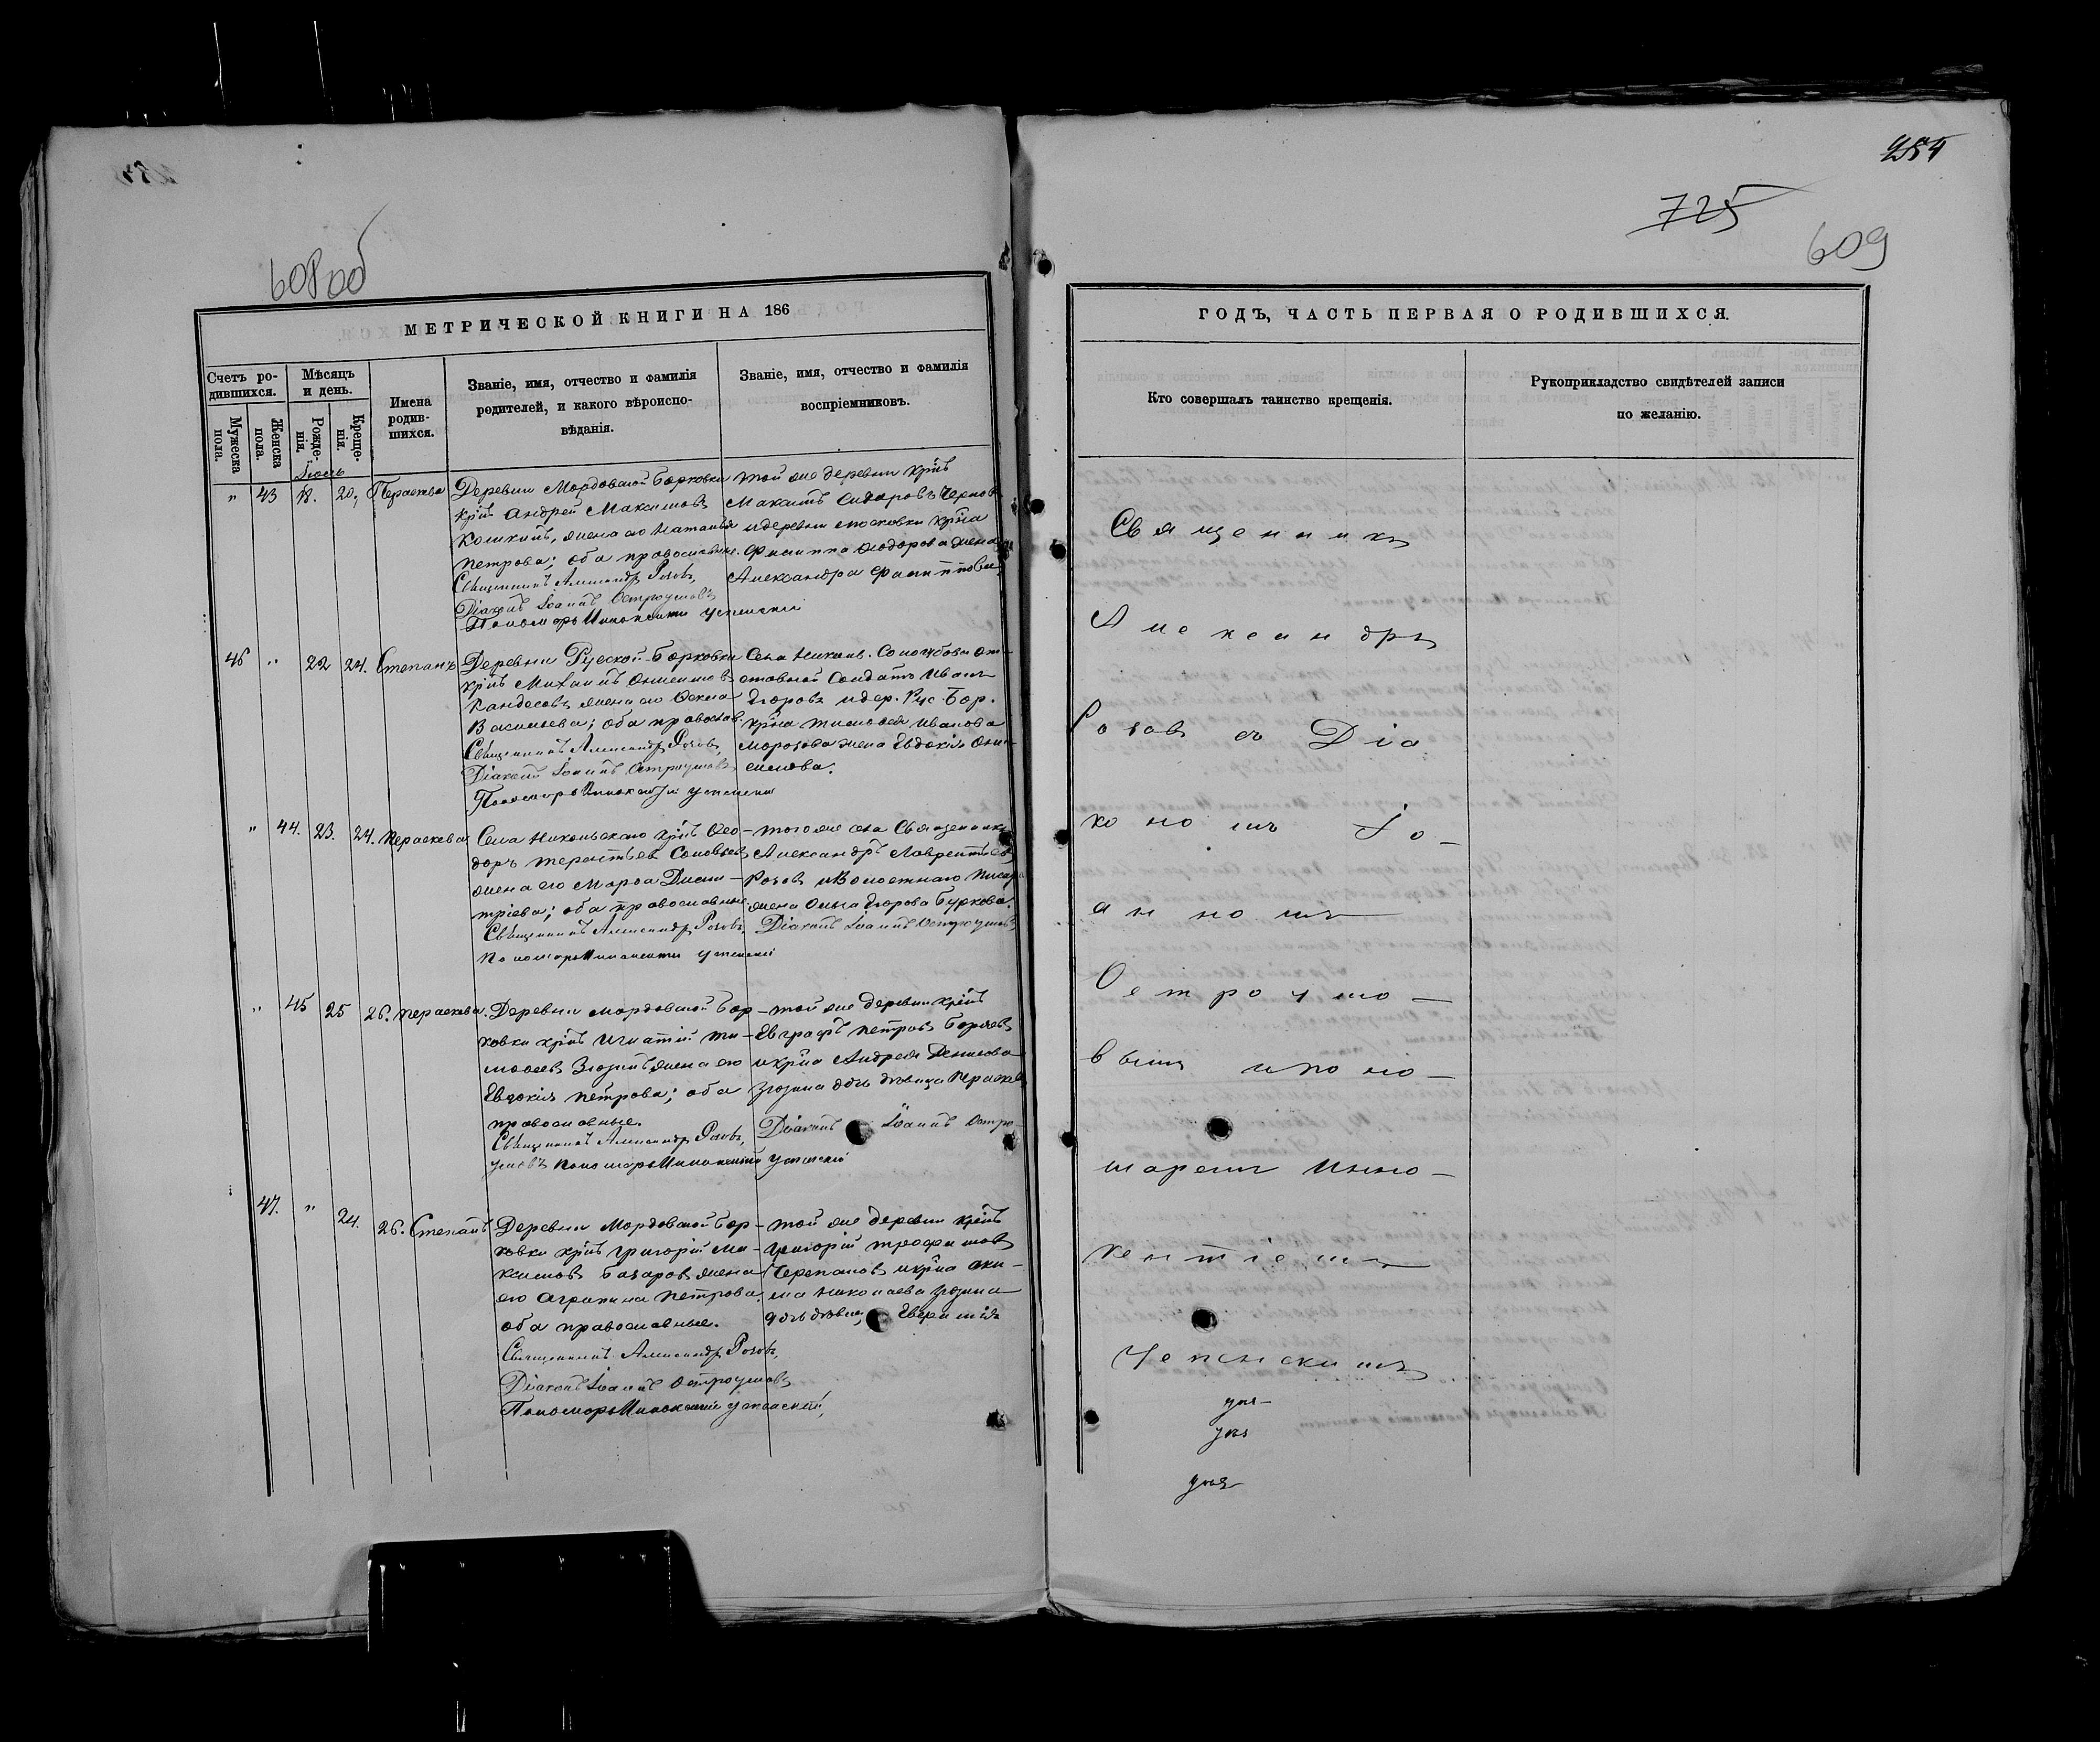 254
725
609
608 об
МЕТРИЧЕСКОЙ КНИГИ НА 186
Счетъ ро-
дившихся.
Мужеска
пола.
Женска
пола.
Мѣсяцъ
и день.
Рожде-
нія.
Креще-
нія.
Имена
родив-
шихся.
Званіе, имя, отчество и фамилія
родителей, и какого вѣроиспо-
вѣданія.
Званіе, имя, отчество и фамилія
воспріемниковъ.
" 43 18. 20,
Деревни Мордовской Борковки
крнъ Андрей Максимовъ
жена его Наталья
Петрова; оба православные.
Священникъ Александръ Розовъ,
Діаконъ Іоаннъ Остроумовъ
Пономарь Иннокентій Успенскій
той же деревни крнъ
Максимъ Сидоровъ
и деревни крна
Филиппа Ѳеодорова жена
Александра Филиппова.
46 " 22 24. Степанъ
Деревни Русской Борковки
крнъ Михаилъ
жена его
Васильева; оба правосл.
Священникъ Александръ Розовъ,
Діаконъ Іоаннъ Остроумовъ
Пономарь Иннокентій Успенскій
Села Никол. от-
ставной Солдатъ Иванъ
Егоровъ и дер. Рус. Бор.
крна Тимоѳея Иванова
Морозова жена Евдокія Они-
симова.
" 44. 23. 24. Параскева
Села Никольскаго крнъ Ѳео-
доръ Терентьевъ Соловьевъ
жена его Марѳа Дими-
тріева; оба православные
Священникъ Александръ Розовъ, Діаконъ Іоаннъ Остроумовъ
Пономарь Иннокентій Успенскій
того же села Священникъ
Александръ Лаврентьевъ
Розовъ и Волостнаго Писаря
жена Ольга Егорова Буркова.
" 45 25 26. Параскева.
Деревни Мордовской Бор-
ковки крнъ Игнатій Ти-
моѳеевъ Зюзинъ жена его
Евдокія Петрова; оба
православные.
Священникъ Александръ Розовъ, Діаконъ Іоаннъ Остро-
умовъ Пономарь Иннокентій Успенскій
той же деревни крнъ
Евграфъ Петровъ
и крна Андрея Денисова
Зюзина дочь дѣвица
47. " 24. 26. Степанъ
Деревни Мордовской Бор-
ковки крнъ Григорій Ма-
ксимовъ Базаровъ жена
его Агрипина Петрова.
оба православные.
Священникъ Александръ Розовъ,
Діаконъ Іоаннъ Остроумовъ
Пономарь Иннокентій Успенскій,
той же деревни крнъ
Григорій Трофимовъ
Черепановъ и крна Аки-
ма Николаева Зюзина
дочь дѣвица
ГОДЪ, ЧАСТЬ ПЕРВАЯ О РОДИВШИХСЯ.
Кто совершалъ таинство крещенія.
Рукоприкладство свидѣтелей записи
по желанію.
Священникъ
Александръ
Розовъ съ Діа
кономъ Іо-
анномъ
Остроумо-
вымъ и поно-
маремъ Инно-
кентіемъ
Успенскимъ